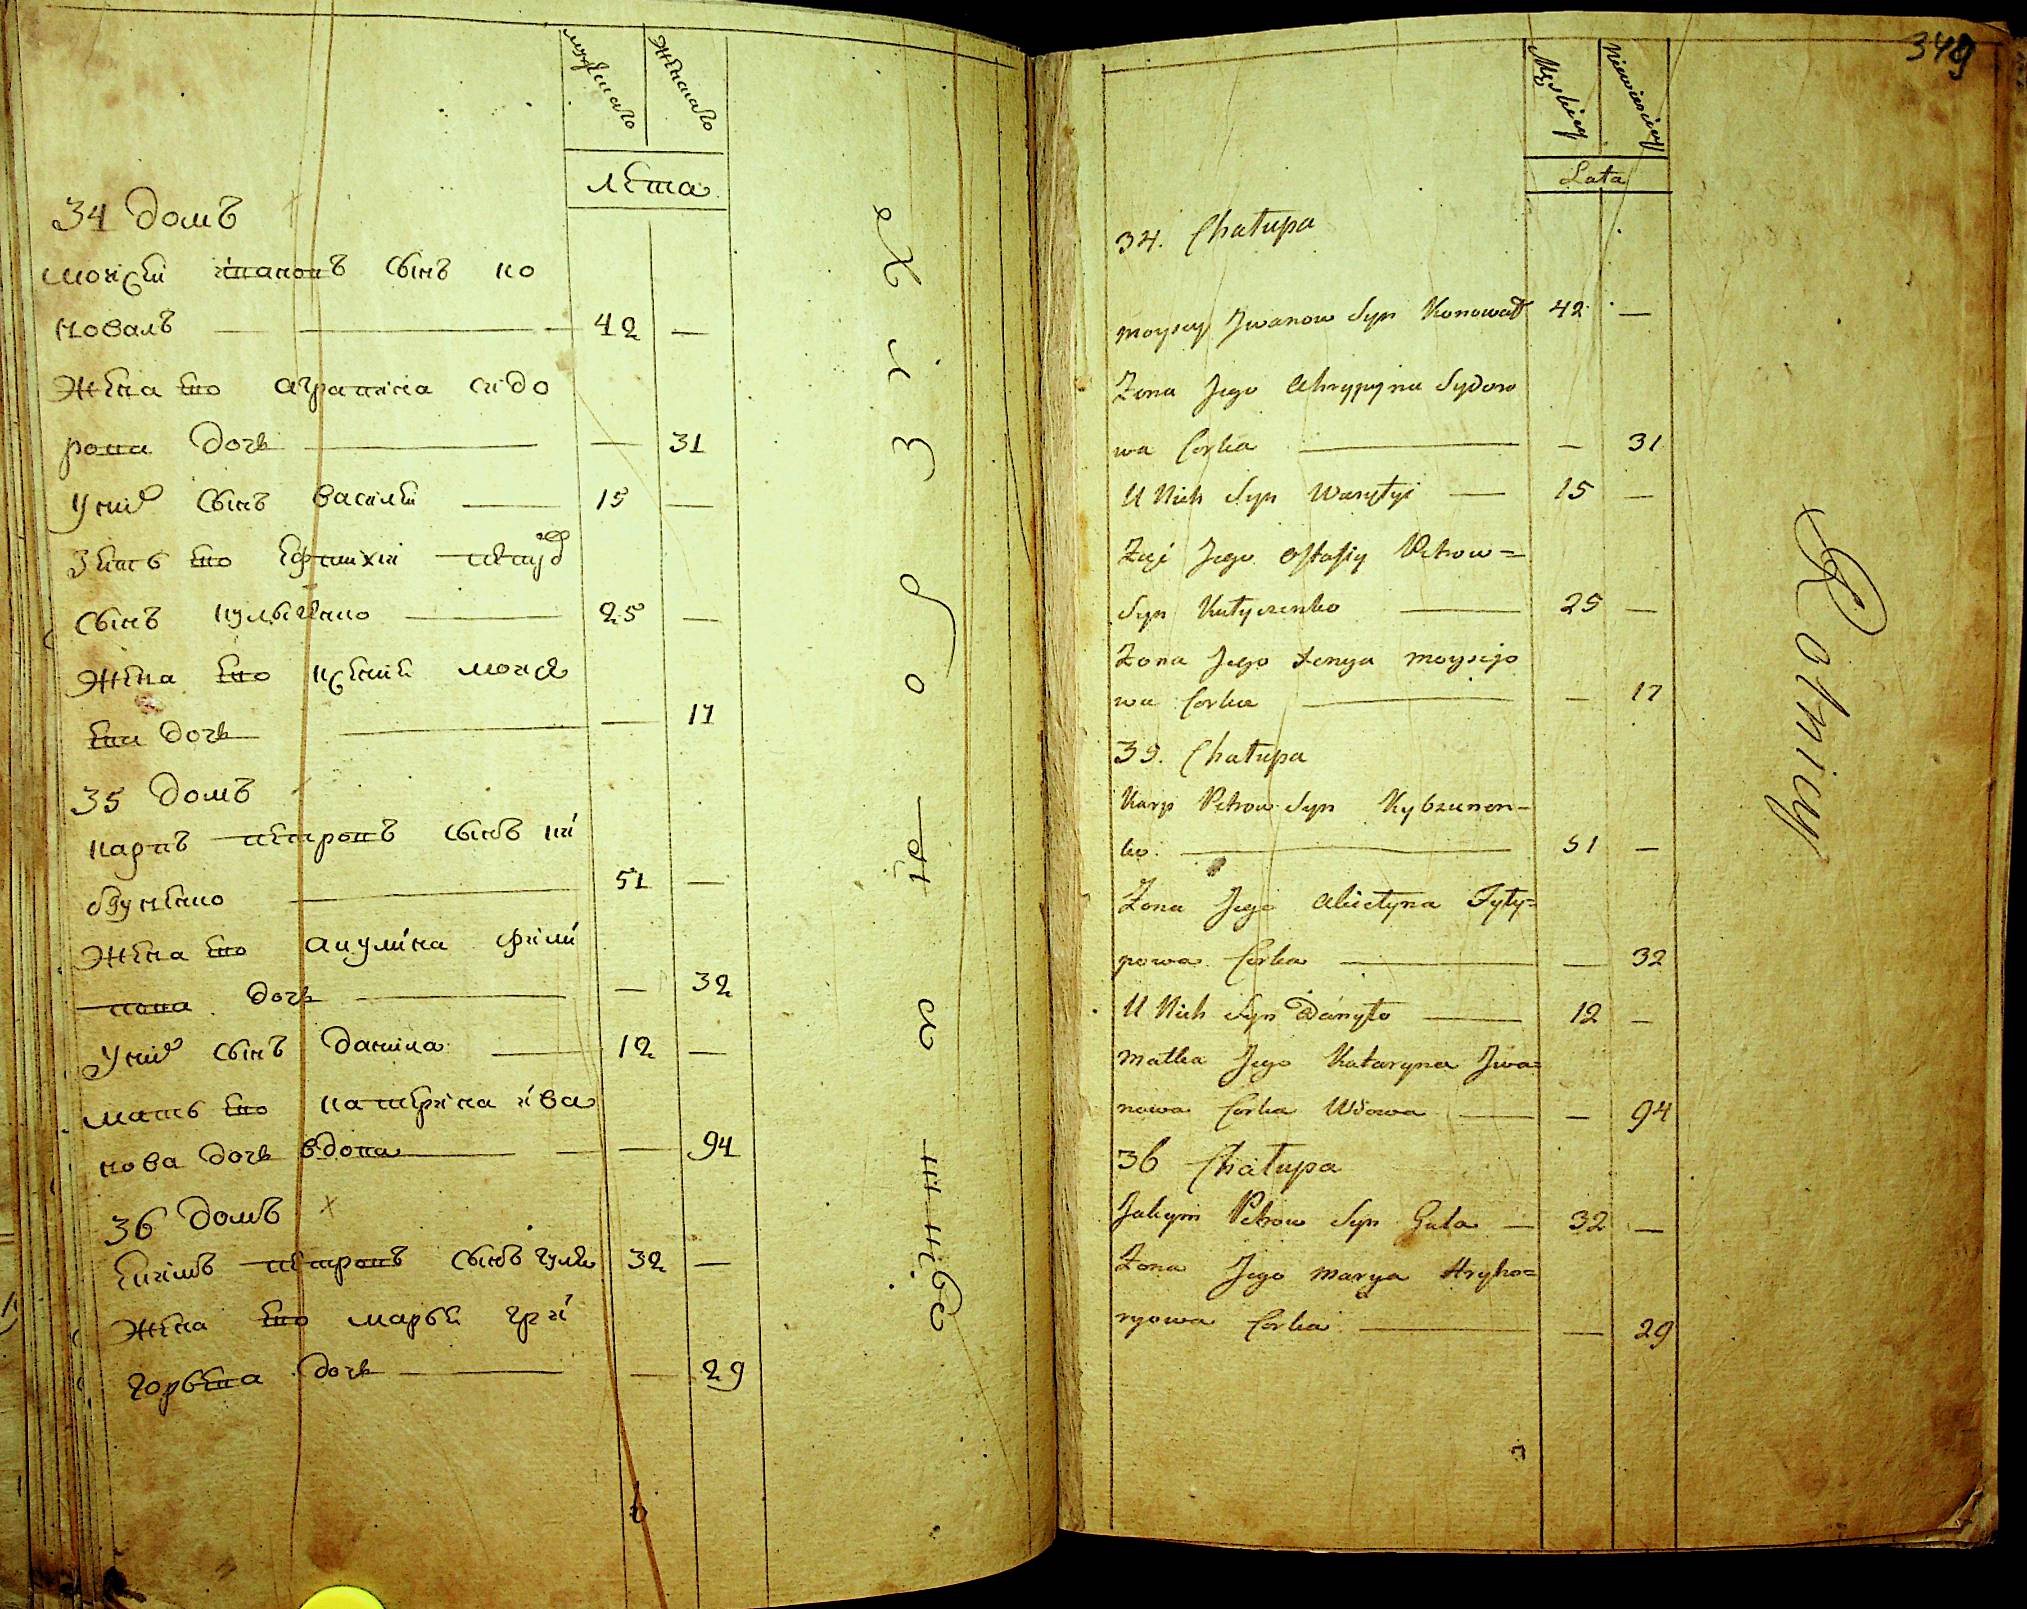 мужеска женска
лѣта
34 домъ
моисѣй ивановъ сынъ ко
новалъ 42 —
жена ево аграпина сидо
рова дочь — 31
у них сынъ василѣй 15 —
зеть ево петровъ
сынъ кулыченко 25 —
жена ево моисѣ
ева дочь — 17
35 домъ
карпъ петровъ сынъ ки
бзуненко 51 —
жена ево акулина фили
пова дочь — 32
у них сынъ данила 12 —
мать ево катерина ива
нова дочь вдова — 94
36 домъ
екимъ петровъ сынъ гула 32 —
жена ево марья гри
горьева дочь — 29
349
Męskiey Niewieściey
Lata
34. Chałupa
Moysey Jwanow Syn Konował 42 —
Żona Jego Ahrypyna Sydoro
wa Corka — 31
U Nich Syn Wasyłyi 15 —
Zięć Jego Ostafiy Petrow=
Syn Kułyczenko 25 —
Żona Jego Xenya Moysejo
wa Corka — 17
35. Chałupa
Karp Petrow Syn Kybzunen=
ko. 51 —
Żona Jego Fyły=
powa Corka — 32
U Nich Syn Danyło 12 —
Matka Jego Kataryna Jwa=
nowa Corka Wdowa — 94
36 Chałupa
Jakym Petrow Syn Gula 32 —
Żona Jego Marya Hryho=
ryowa Corka — 29
Rolnicy